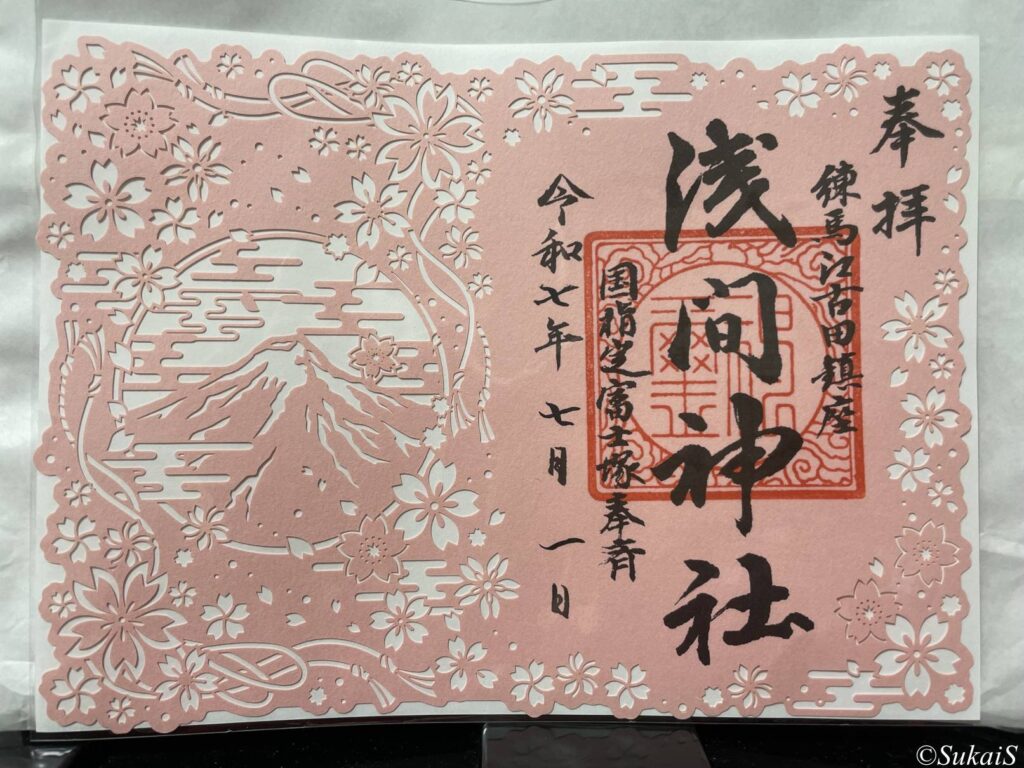 奉拝
練馬江古田鎮座
浅間神社
国指定富士塚奉斎
令和七年 七月 一日
©SukaiS